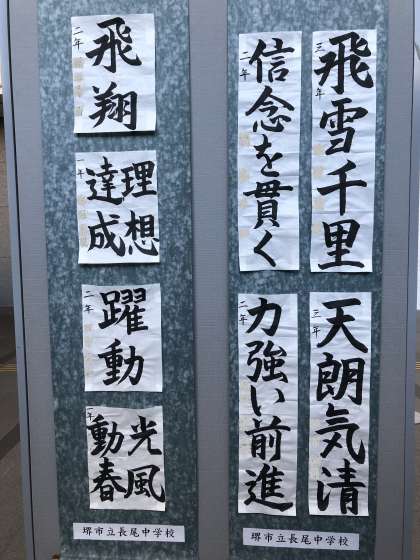 飛雪千里
三年
信念を貫く
二年
天朗気清
三年
力強い前進
二年
堺市立長尾中学校
飛翔
二年
理想
達成
一年
躍動
二年
光風
動春
一年
堺市立長尾中学校